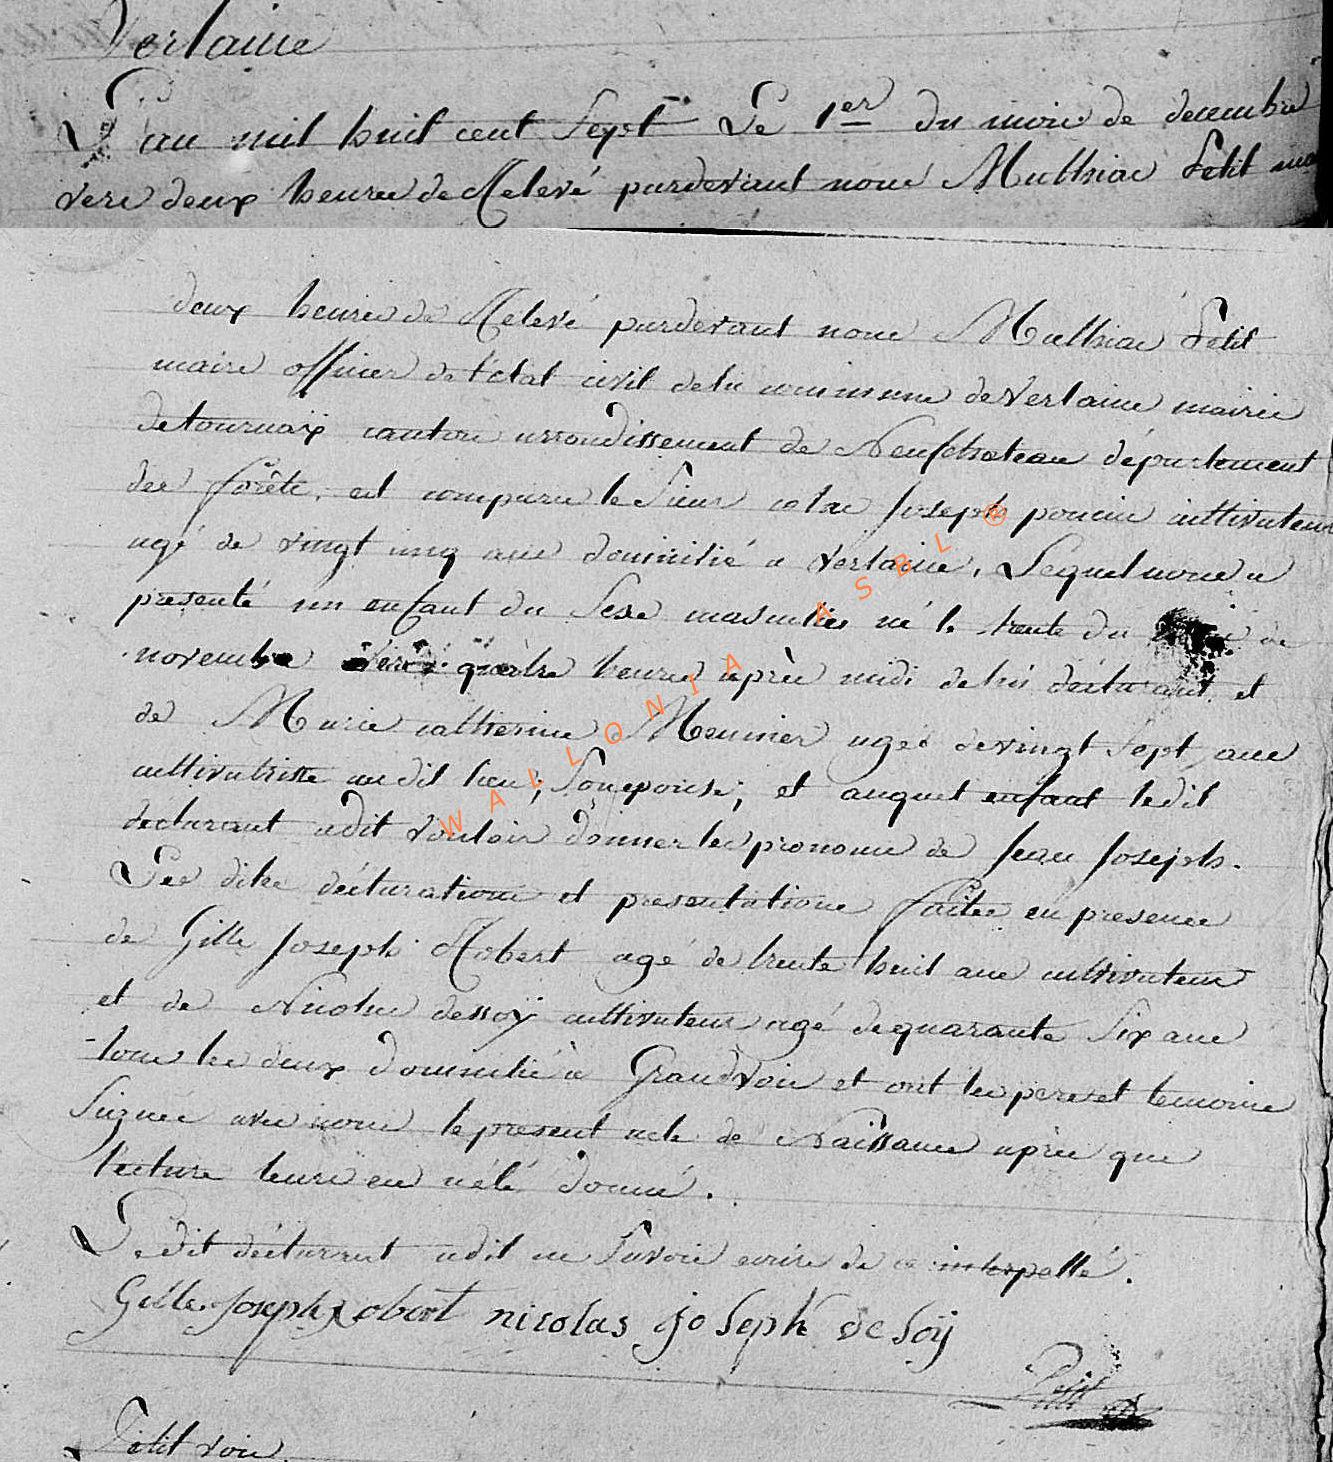 Verlaine
L'an mil huit cent Sept Le 1er du mois de decembre
vers deux heures de Relevé pardevant nous Mathias Petit
deux heures de Relevé pardevant nous Mathias Petit
maire officier de l'etat civil de la commune de Verlaine mairie
de tournay canton arrondissement de Neufchateau département
des forêts, est comparu le Sieur Joseph poncin cultivateur
agé de vingt cinq ans domicilié a Verlaine, Lequel nous a
presenté un enfant du Sexe masculin né le trente du de
novembre vers quatre heures après midi de lui déclarant et
de Marie catherine Meunier agée de vingt Sept ans
cultivatrisse audit lieu, Son epouse; et auquel enfant ledit
declarant a dit vouloir donner les prenoms de Jean Joseph.
Les dites déclarations et presentations faites en presence
de Gille Joseph Robert agé de trente huit ans cultivateur
et de Nicolas dessoÿ cultivateur agé de quarante Six ans
tous les deux domicilié à Grandvoir et ont les pere et temoins
Signés avec nous le present acte de Naissance après que
lecture leurs en a été donné.
Ledit déclarant a dit ne Savoir ecrire de ce interpellé.
Gille Joseph Robert nicolas joseph de soÿ
Petit
Petit voir
W A L L O N I A A S B L ®